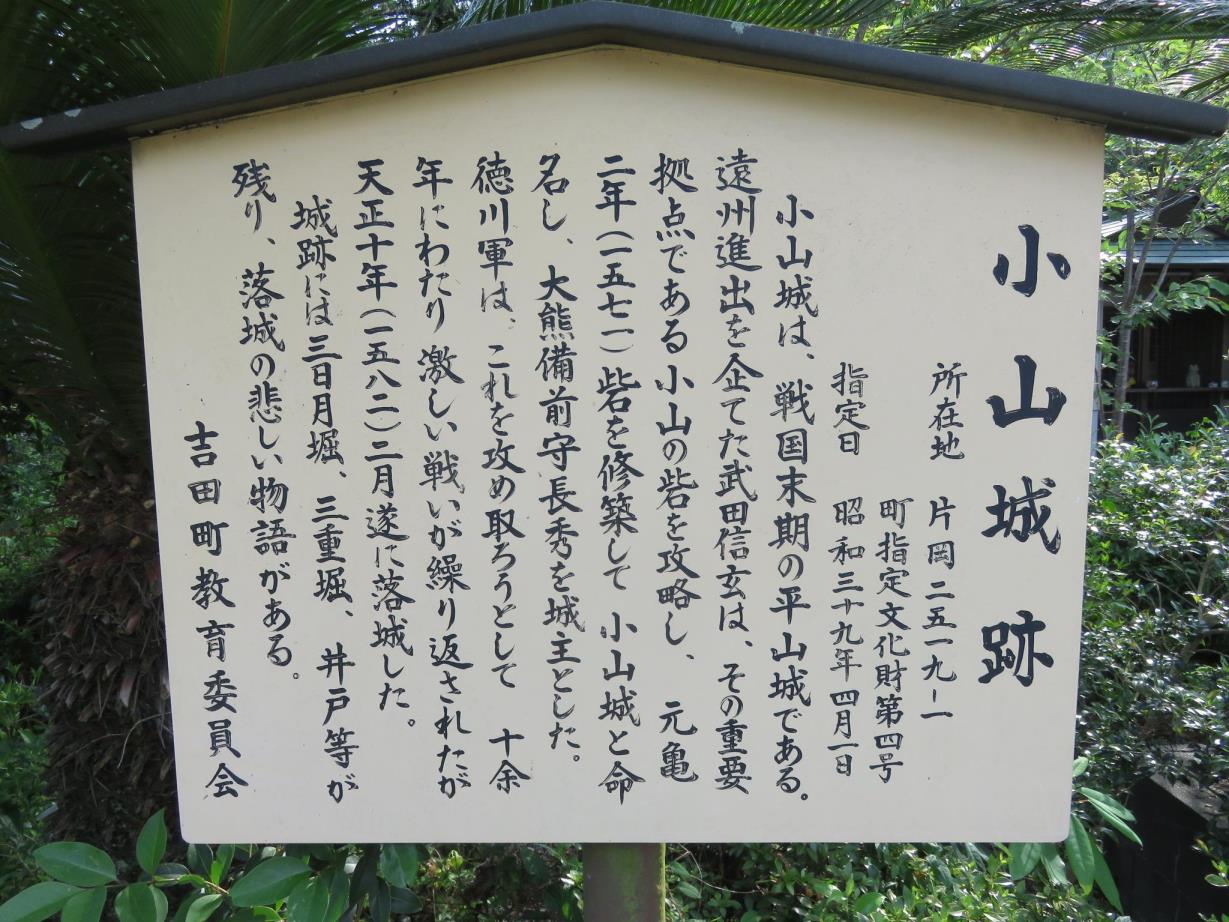 小山城跡
所在地 片岡二五一九-一
町指定文化財第四号
指定日 昭和三十九年四月一日
小山城は、戦国末期の平山城である。
遠州進出を企てた武田信玄は、その重要
拠点である小山の砦を攻略し、元亀
二年(一五七一)砦を修築して小山城と命
名し、大熊備前守長秀を城主とした。
徳川軍は、これを攻め取ろうとして十余
年にわたり激しい戦いが繰り返されたが
天正十年(一五八二)二月遂に落城した。
城跡には三日月堀、三重堀、井戸等が
残り、落城の悲しい物語がある。
吉田町教育委員会